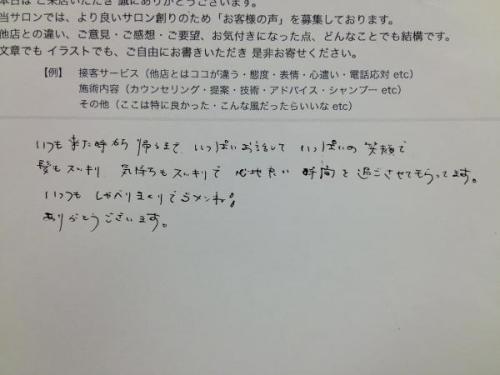 本日は ご来店いただき 誠にありがとうございます。
当サロンでは、より良いサロン創りのため「お客様の声」を募集しております。
他店との違い、ご意見・ご感想・ご要望、お気付きになった点、どんなことでも結構です。
文章でも イラストでも、ご自由にお書きいただき 是非お寄せください。
【例】 接客サービス（他店とはココが違う・態度・表情・心遣い・電話応対 etc）
施術内容（カウンセリング・提案・技術・アドバイス・シャンプー etc）
その他（ここは特に良かった・こんな風だったらいいな etc）
いつも 来た時から 帰るまで、いっぱいお話して いっぱいの 笑顔で
髪もスッキリ 気持ちもスッキリで 心地良い 時間を 過ごさせてもらってます。
いっつも しゃべりまくりでゴメンね!!
ありがとうございます。